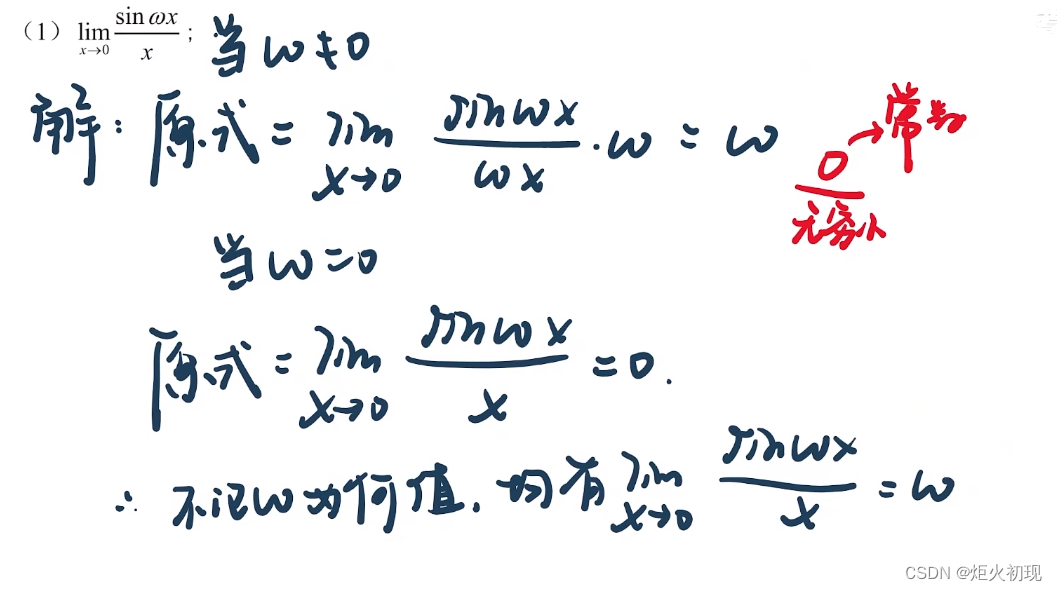 (1) lim x→0 sin ωx / x ; 当 ω ≠ 0
解: 原式 = lim x→0 sin ωx / ωx · ω = ω
0 / 无穷小 → 常数
当 ω = 0
原式 = lim x→0 sin ωx / x = 0.
∴ 不记 ω 为何值, 均有 lim x→0 sin ωx / x = ω
CSDN @炬火初现